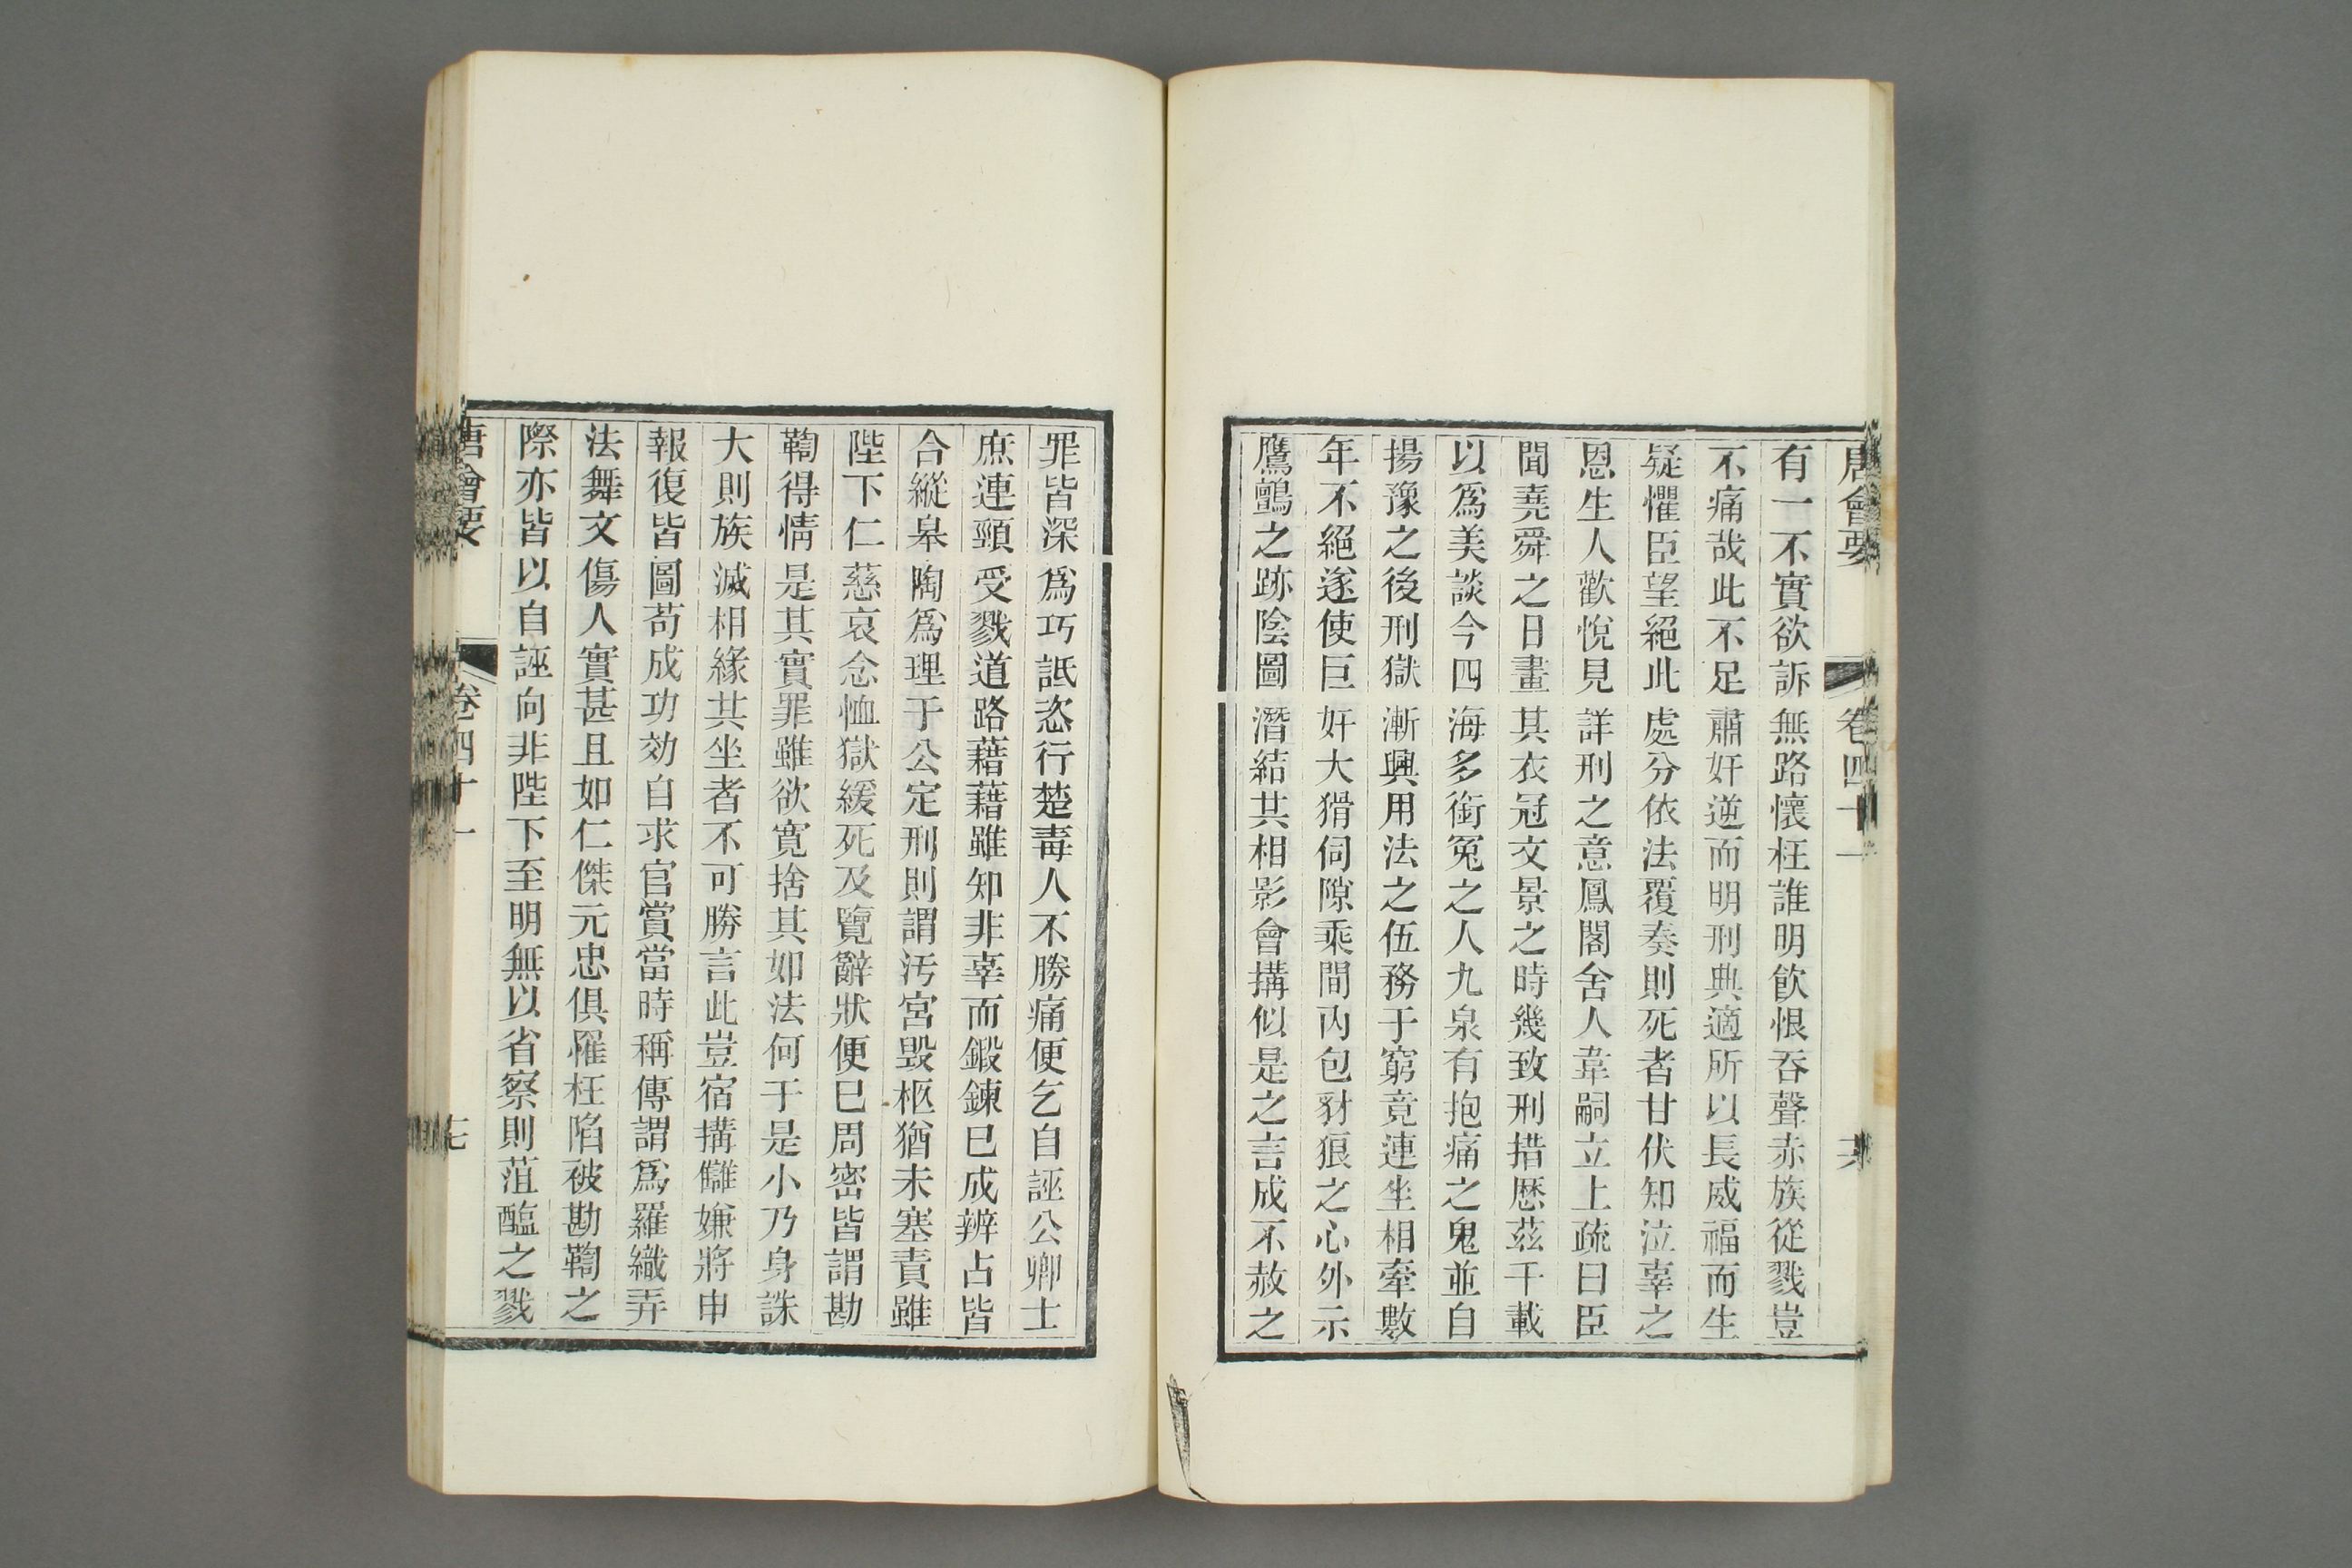 唐會要 卷四十一
有一不實欲訴無路懷枉誰明飮恨吞聲赤族從戮豈
不痛哉此不足肅奸逆而明刑典適所以長威福而生
疑懼臣望絕此處分依法覆奏則死者甘伏知泣辜之
恩生人歡悅見詳刑之意鳳閣舍人韋嗣立上疏曰臣
聞堯舜之日畫其衣冠文景之時幾致刑措歷茲千載
以爲美談今四海多銜冤之人九泉有抱痛之鬼並自
揚豫之後刑獄漸興用法之伍務于窮竟連坐相牽數
年不絕遂使巨奸大猾伺隙乘間內包豺狼之心外示
鷹鸇之跡陰圖潛結共相影會搆似是之言成不赦之
罪皆深爲巧詆恣行楚毒人不勝痛便乞自誣公卿士
庶連頸受戮道路藉藉雖知非辜而鍛鍊已成辨占皆
合縱皋陶爲理于公定刑則謂汚宮毀柩猶未塞責雖
陛下仁慈哀念恤獄緩死及覽辭狀便已周密皆謂勘
鞫得情是其實罪雖欲寬捨其如法何于是小乃身誅
大則族滅相緣共坐者不可勝言此豈宿搆讎嫌將申
報復皆圖苟成功効自求官賞當時稱傳謂爲羅織弄
法舞文傷人實甚且如仁傑元忠俱罹枉陷被勘鞫之
際亦皆以自誣向非陛下至明無以省察則菹醢之戮
唐會要 卷四十一